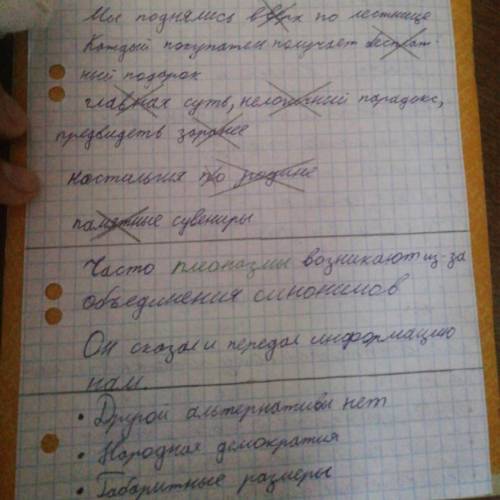 Мы поднялись вверх по лестнице
Каждый покупатель получает бесплат-
ный подарок
главная суть, нелогичный парадокс,
предвидеть заранее
ностальгия по родине
памятные сувениры
Часто плеоназмы возникают из-за
объединения синонимов
Он сказал и передал информацию
нам.
• Другой альтернативы нет
• Народная демократия
• Габаритные размеры